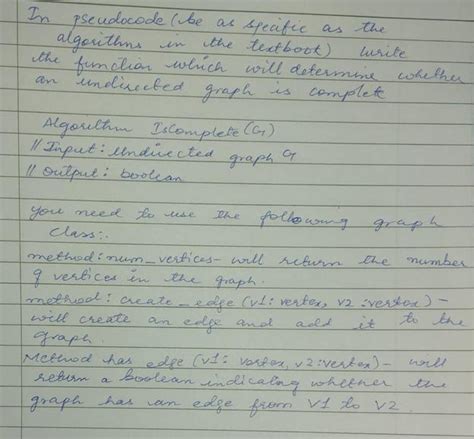 In pseudocode (be as specific as the
algorithms in the textboot) write
the function which will determine whether
an undirected graph is complete
Algorithm IsComplete (G)
// Input: Undirected graph G
// Output: boolean
you need to use the following graph
class:.
method: num_vertices - will return the number
of vertices in the graph.
method: create_edge (v1: vertex, v2: vertex) -
will create an edge and add it to the
graph.
Method has edge (v1: vertex, v2: vertex) - will
return a boolean indicating whether the
graph has an edge from V1 to V2.